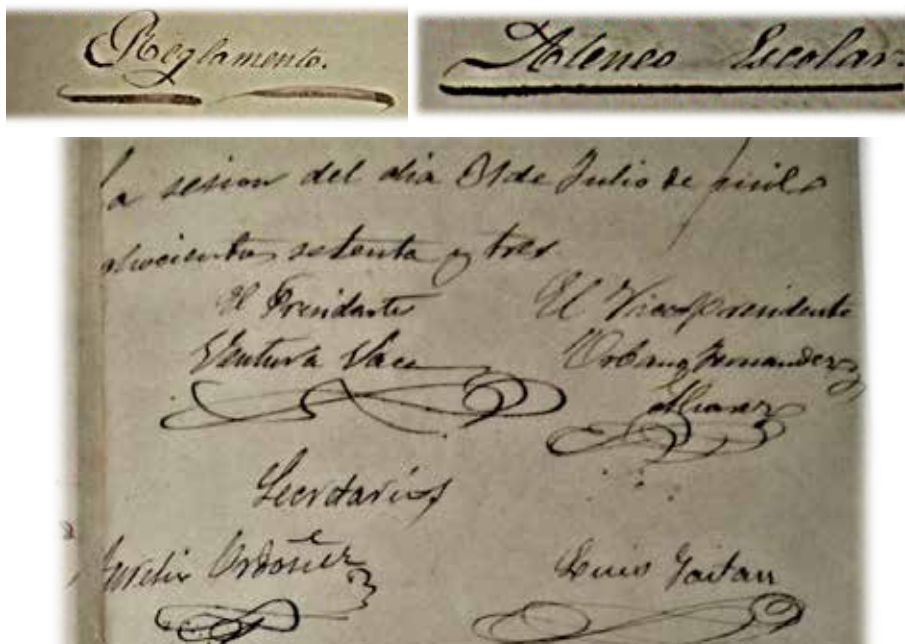 Reglamento.
Ateneo Escolar.
la sesion del dia 31 de Julio de mil
ochocientos setenta y tres
El Presidente
El Vicepresidente
Ventura Vaca
Urbano Fernandez
Alvarez
Secretarios
Aurelio Ordoñez
Luis Gaitan